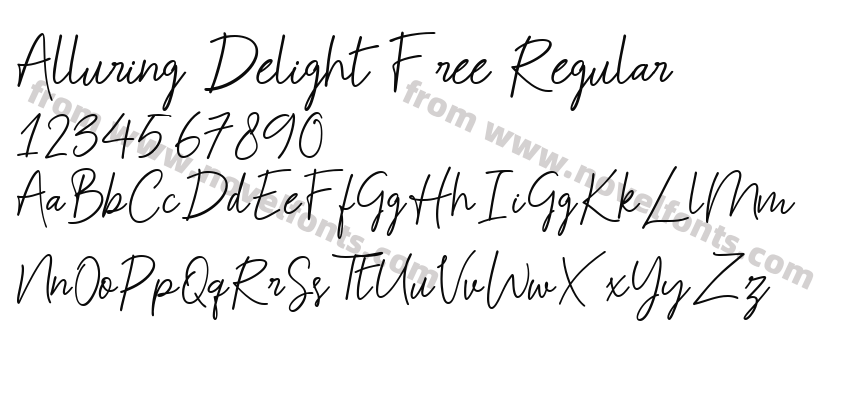 Alluring Delight Free Regular
1234567890
AaBbCcDdEeFfGgHhIiGgKkLlMm
NnOoPpQqRrSsTtUuVvWwXxYyZz
from www.novelfonts.com
from www.novelfonts.com